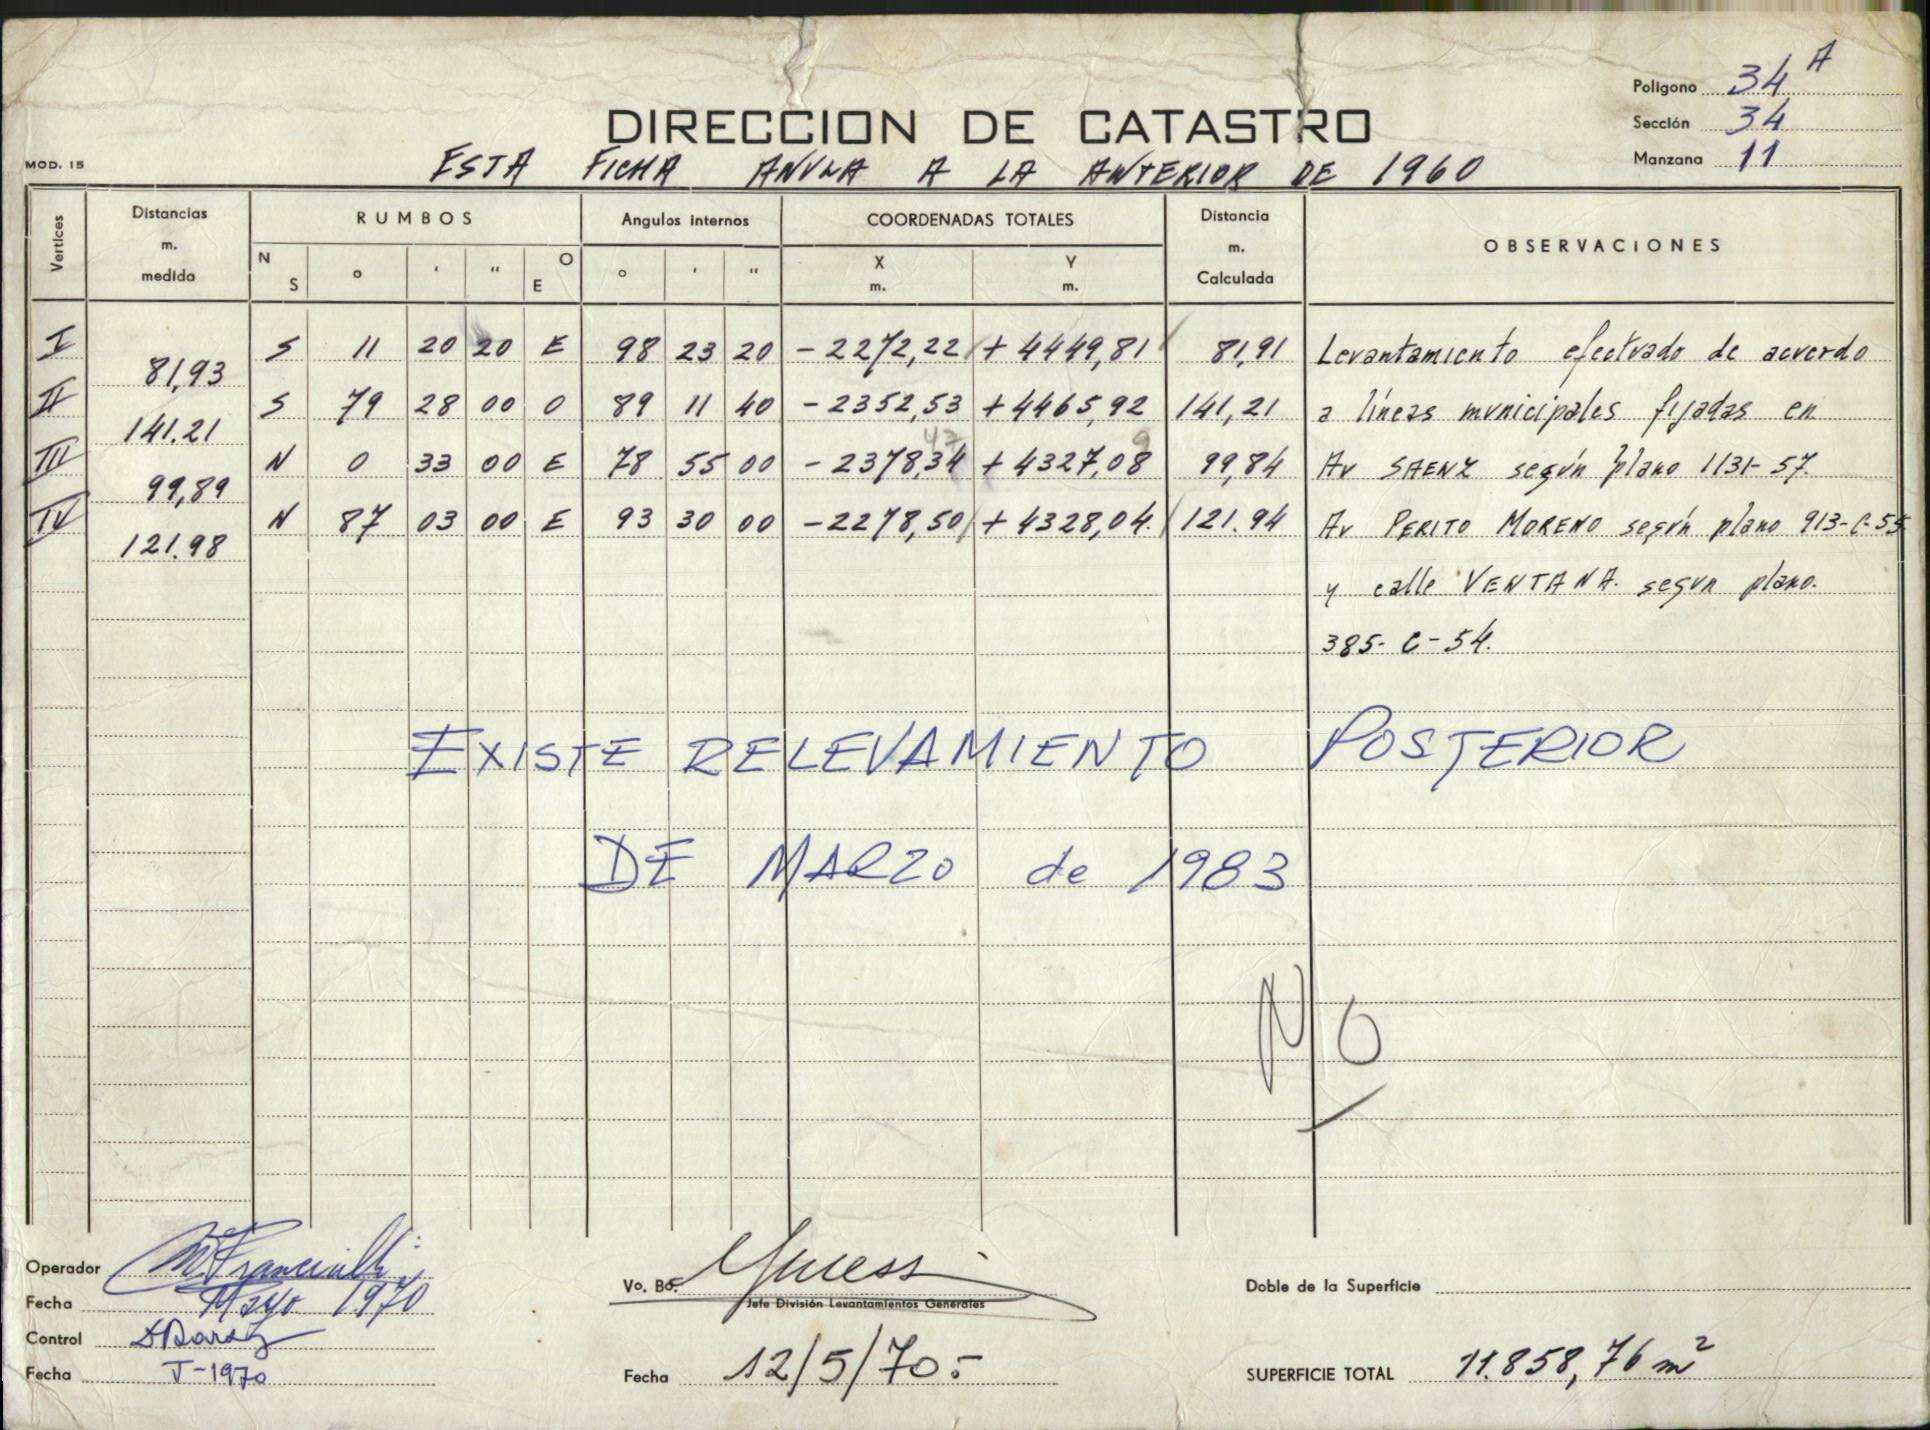 Polígono 34 A
Sección 34
Manzana 11
DIRECCION DE CATASTRO
MOD. 15
ESTA FICHA ANULA A LA ANTERIOR DE 1960
Vertices Distancias m. medida RUMBOS Angulos internos COORDENADAS TOTALES Distancia m. Calculada OBSERVACIONES
N S ° ' " O E ° ' " X m. Y m.
I S 11 20 20 E 98 23 20 - 2272,22 + 4449,81 81,91 Levantamiento efectuado de acuerdo
81,93
II S 79 28 00 O 89 11 40 - 2352,53 + 4465,92 141,21 a líneas municipales fijadas en
141.21
47 9
III N 0 33 00 E 78 55 00 - 2378,34 + 4327,08 99,84 Av SAENZ según plano 1131-57.
99,89
IV N 87 03 00 E 93 30 00 - 2278,50 + 4328,04. 121.94 Av PERITO MORENO según plano 913-C-55
121.98
y calle VENTANA. segun plano.
385- C-54.
EXISTE RELEVAMIENTO POSTERIOR
DE MARZO de 1983
NO
Operador
Fecha Mayo 1970
Control
Fecha V-1970
Vo. Bo.
Jefe División Levantamientos Generales
Fecha 12/5/70.-
Doble de la Superficie
SUPERFICIE TOTAL 11.858,76 m²